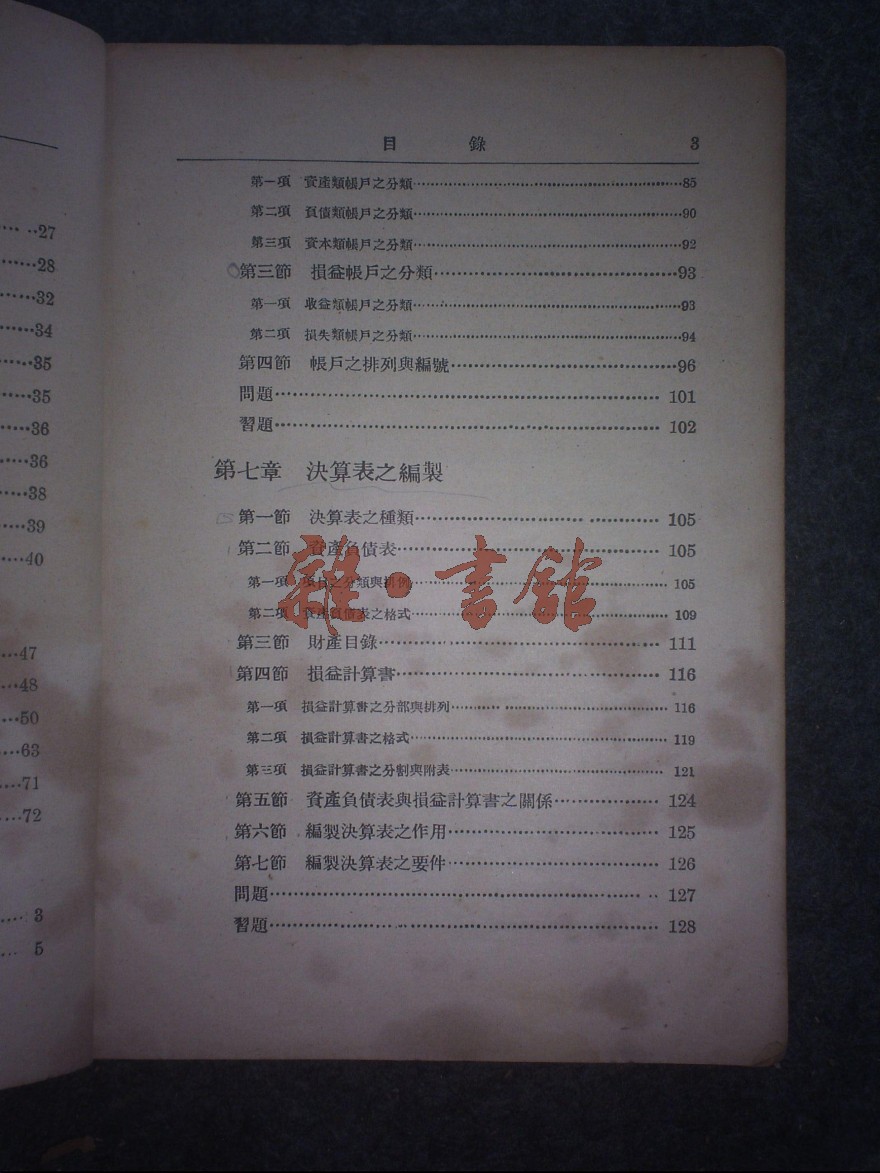 ··27
28
32
34
35
35
36
36
38
39
40
47
48
50
63
71
72
3
5
目 錄 3
第一項 資產類帳戶之分類··········85
第二項 負債類帳戶之分類··········90
第三項 資本類帳戶之分類··········92
第三節 損益帳戶之分類··········93
第一項 收益類帳戶之分類··········93
第二項 損失類帳戶之分類··········94
第四節 帳戶之排列與編號··········96
問題··········101
習題··········102
第七章 決算表之編製
第一節 決算表之種類··········105
第二節 資產負債表··········105
第一項 項目之分類與排例··········105
第二項 資產負債表之格式··········109
第三節 財產目錄··········111
第四節 損益計算書··········116
第一項 損益計算書之分部與排列··········116
第二項 損益計算書之格式··········119
第三項 損益計算書之分割與附表··········121
第五節 資產負債表與損益計算書之關係··········124
第六節 編製決算表之作用··········125
第七節 編製決算表之要件··········126
問題··········127
習題··········128
雜·書館